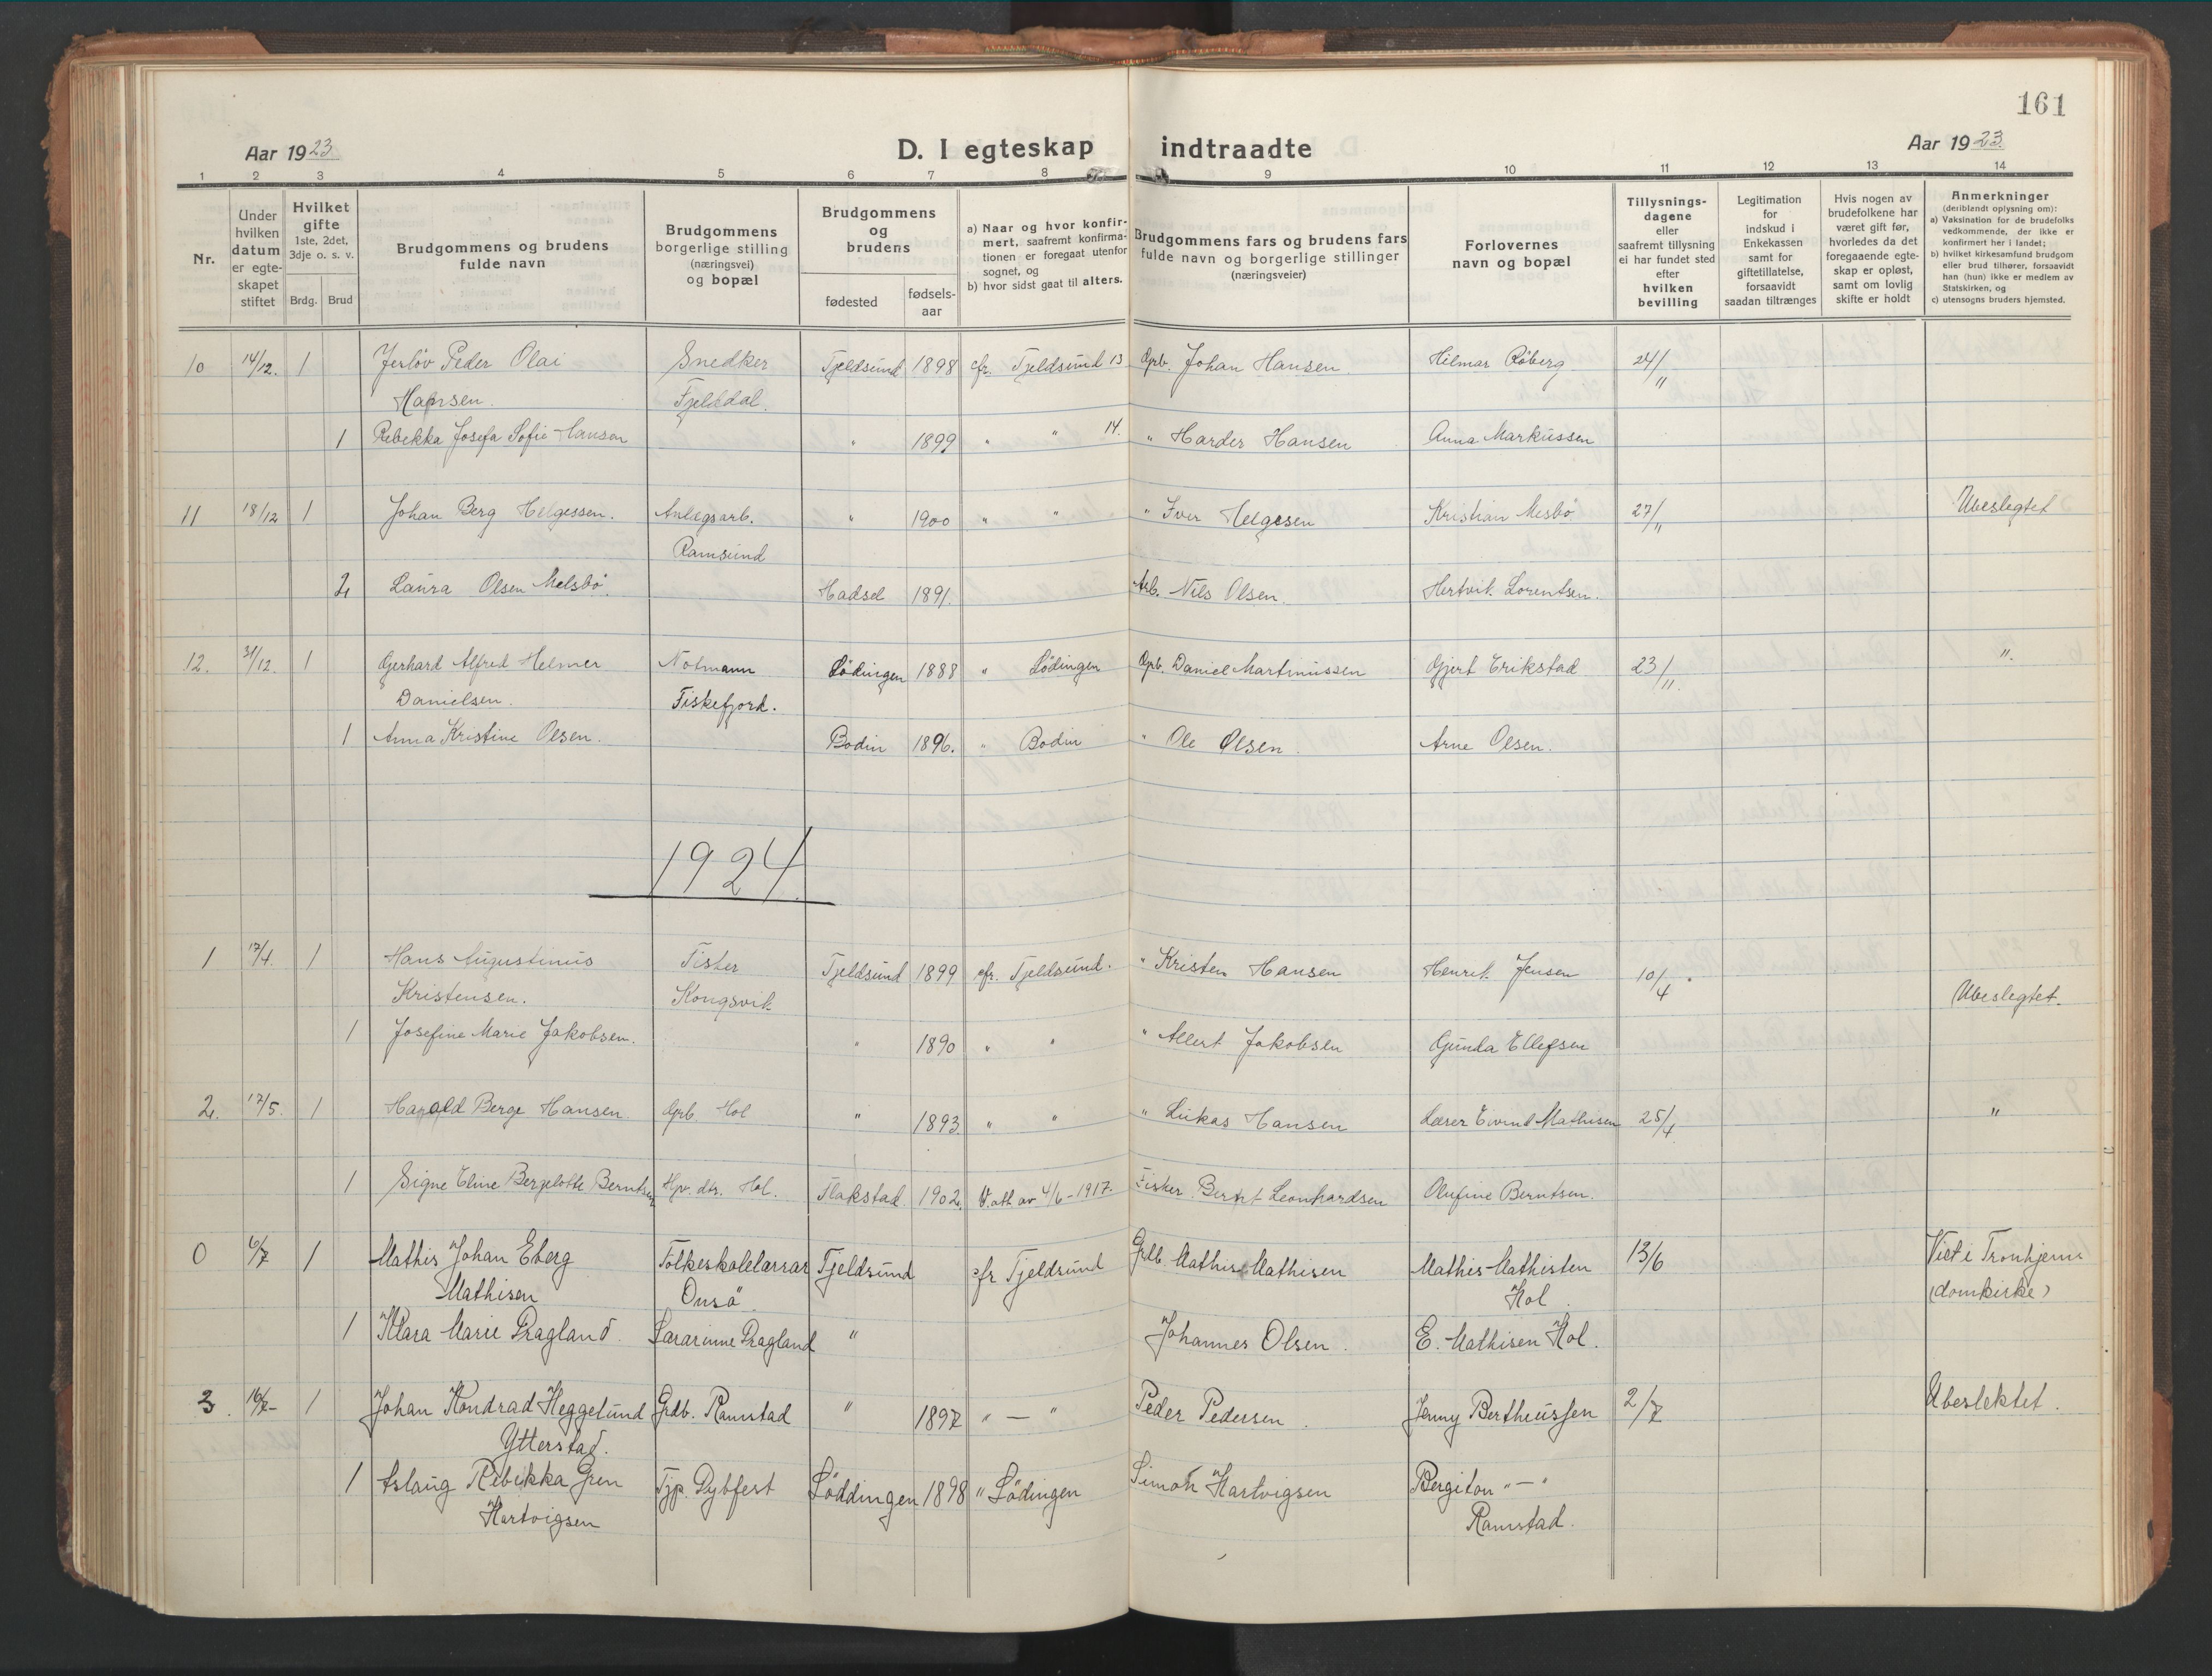 161
Aar 1923
D. I egteskap indtraadte
Aar 1923.
1 2 3 4 5 6 7 8 9 10 11 12 13 14
Nr.
Under hvilken datum er egteskapet stiftet
Hvilket gifte 1ste, 2det, 3dje o. s. v.
Brdg. Brud
Brudgommens og brudens fulde navn
Brudgommens borgerlige stilling (næringsvei) og bopæl
Brudgommens og brudens
fødested
fødselsaar
a) Naar og hvor konfirmert, saafremt konfirmationen er foregaat utenfor sognet, og
b) hvor sidst gaat til alters.
Brudgommens fars og brudens fars fulde navn og borgerlige stillinger (næringsveier)
Forlovernes navn og bopæl
Tillysningsdagene eller saafremt tillysning ei har fundet sted efter hvilken bevilling
Legitimation for indskud i Enkekassen samt for giftetillatelse, forsaavidt saadan tiltrænges
Hvis nogen av brudefolkene har været gift før, hvorledes da det foregaaende egteskap er opløst, samt om lovlig skifte er holdt
Anmerkninger
(deriblandt oplysning om):
a) Vaksination for de brudefolks vedkommende, der ikke er konfirmert her i landet;
b) hvilket kirkesamfund brudgom eller brud tilhører, forsaavidt han (hun) ikke er medlem av Statskirken, og
c) utensogns bruders hjemsted.
10 14/12. 1 Peder Olai Snedker Tjeldsund 1898 cfr. Tjeldsund 13 Gpb. Johan Hansen Hilmar Røberg 24/11
Hansen. Fjelddal.
1 Rebekka Josefa Sofie Hansen " 1899 " " 14. " Harder Hansen Anna Markussen
11 18/12 1 Johan Berg Helgessen. Anlægsarb. " 1900 " " " Iver Helgesen Kristian Mesbø 27/11 Ubeslegtet
Ramsund
2 Laura Olsen Melsbø. Hadsel 1891. Arb. Nils Olsen. Hertvik Lorentsen.
12. 31/12. 1 Gerhard Alfred Helmer Notmann Lødingen 1888 " Lødingen Gpb. Daniel Martinussen Gjert Erikstad 23/11. ".
Danielsen. Fiskefjord.
1 Anna Kristine Olsen. Bodin 1896. " Bodin " Ole Olsen. Arne Olsen.
1924
1 17/4. 1 Hans Augustinus Fisker Tjeldsund 1899 cfr. Tjeldsund. " Kristen Hansen Henrik Jensen 10/4.
Kristensen. Kongsvik Ubeslegtet.
1 Josefine Marie Jakobsen. " 1890 " " " Allert Jakobsen Gunda Ellefsen
2. 17/5. 1 Harald Berge Hansen. Gpb. Hol " 1893. " " " Lukas Hansen Lærer Eivind Mathisen 25/4 "
1 Signe Eline Bergelotte Berntsen Hpr. dtr. Hol. Flakstad 1902. V. att. av 4/6-1917. Fisker Bernt Leonhardsen Olufine Berntsen.
0 6/7 1 Mathis Johan Eberg Folkeskolelærar Tjeldsund cfr Tjeldsund Grdb. Mathis Mathisen Mathis Mathisten 13/6 Viet i Tronhjem
Mathisen Onsø Hol (domkirke)
1 Klara Marie Dragland. Lærarinne Dragland " Johannes Olsen. E. Mathisen Hol.
3. 16/7- 1 Johan Kondrad Heggelund Grdb. Ramstad " 1897 " — " Peder Pedersen. Jenny Bertheussen 2/7 Ubeslektet.
Ytterstad.
1 Aslaug Rebikka Gren Løddingen 1898 " Lødingen Simon Hartvigsen Bergiton " — "
Hartvigsen Ramstad.